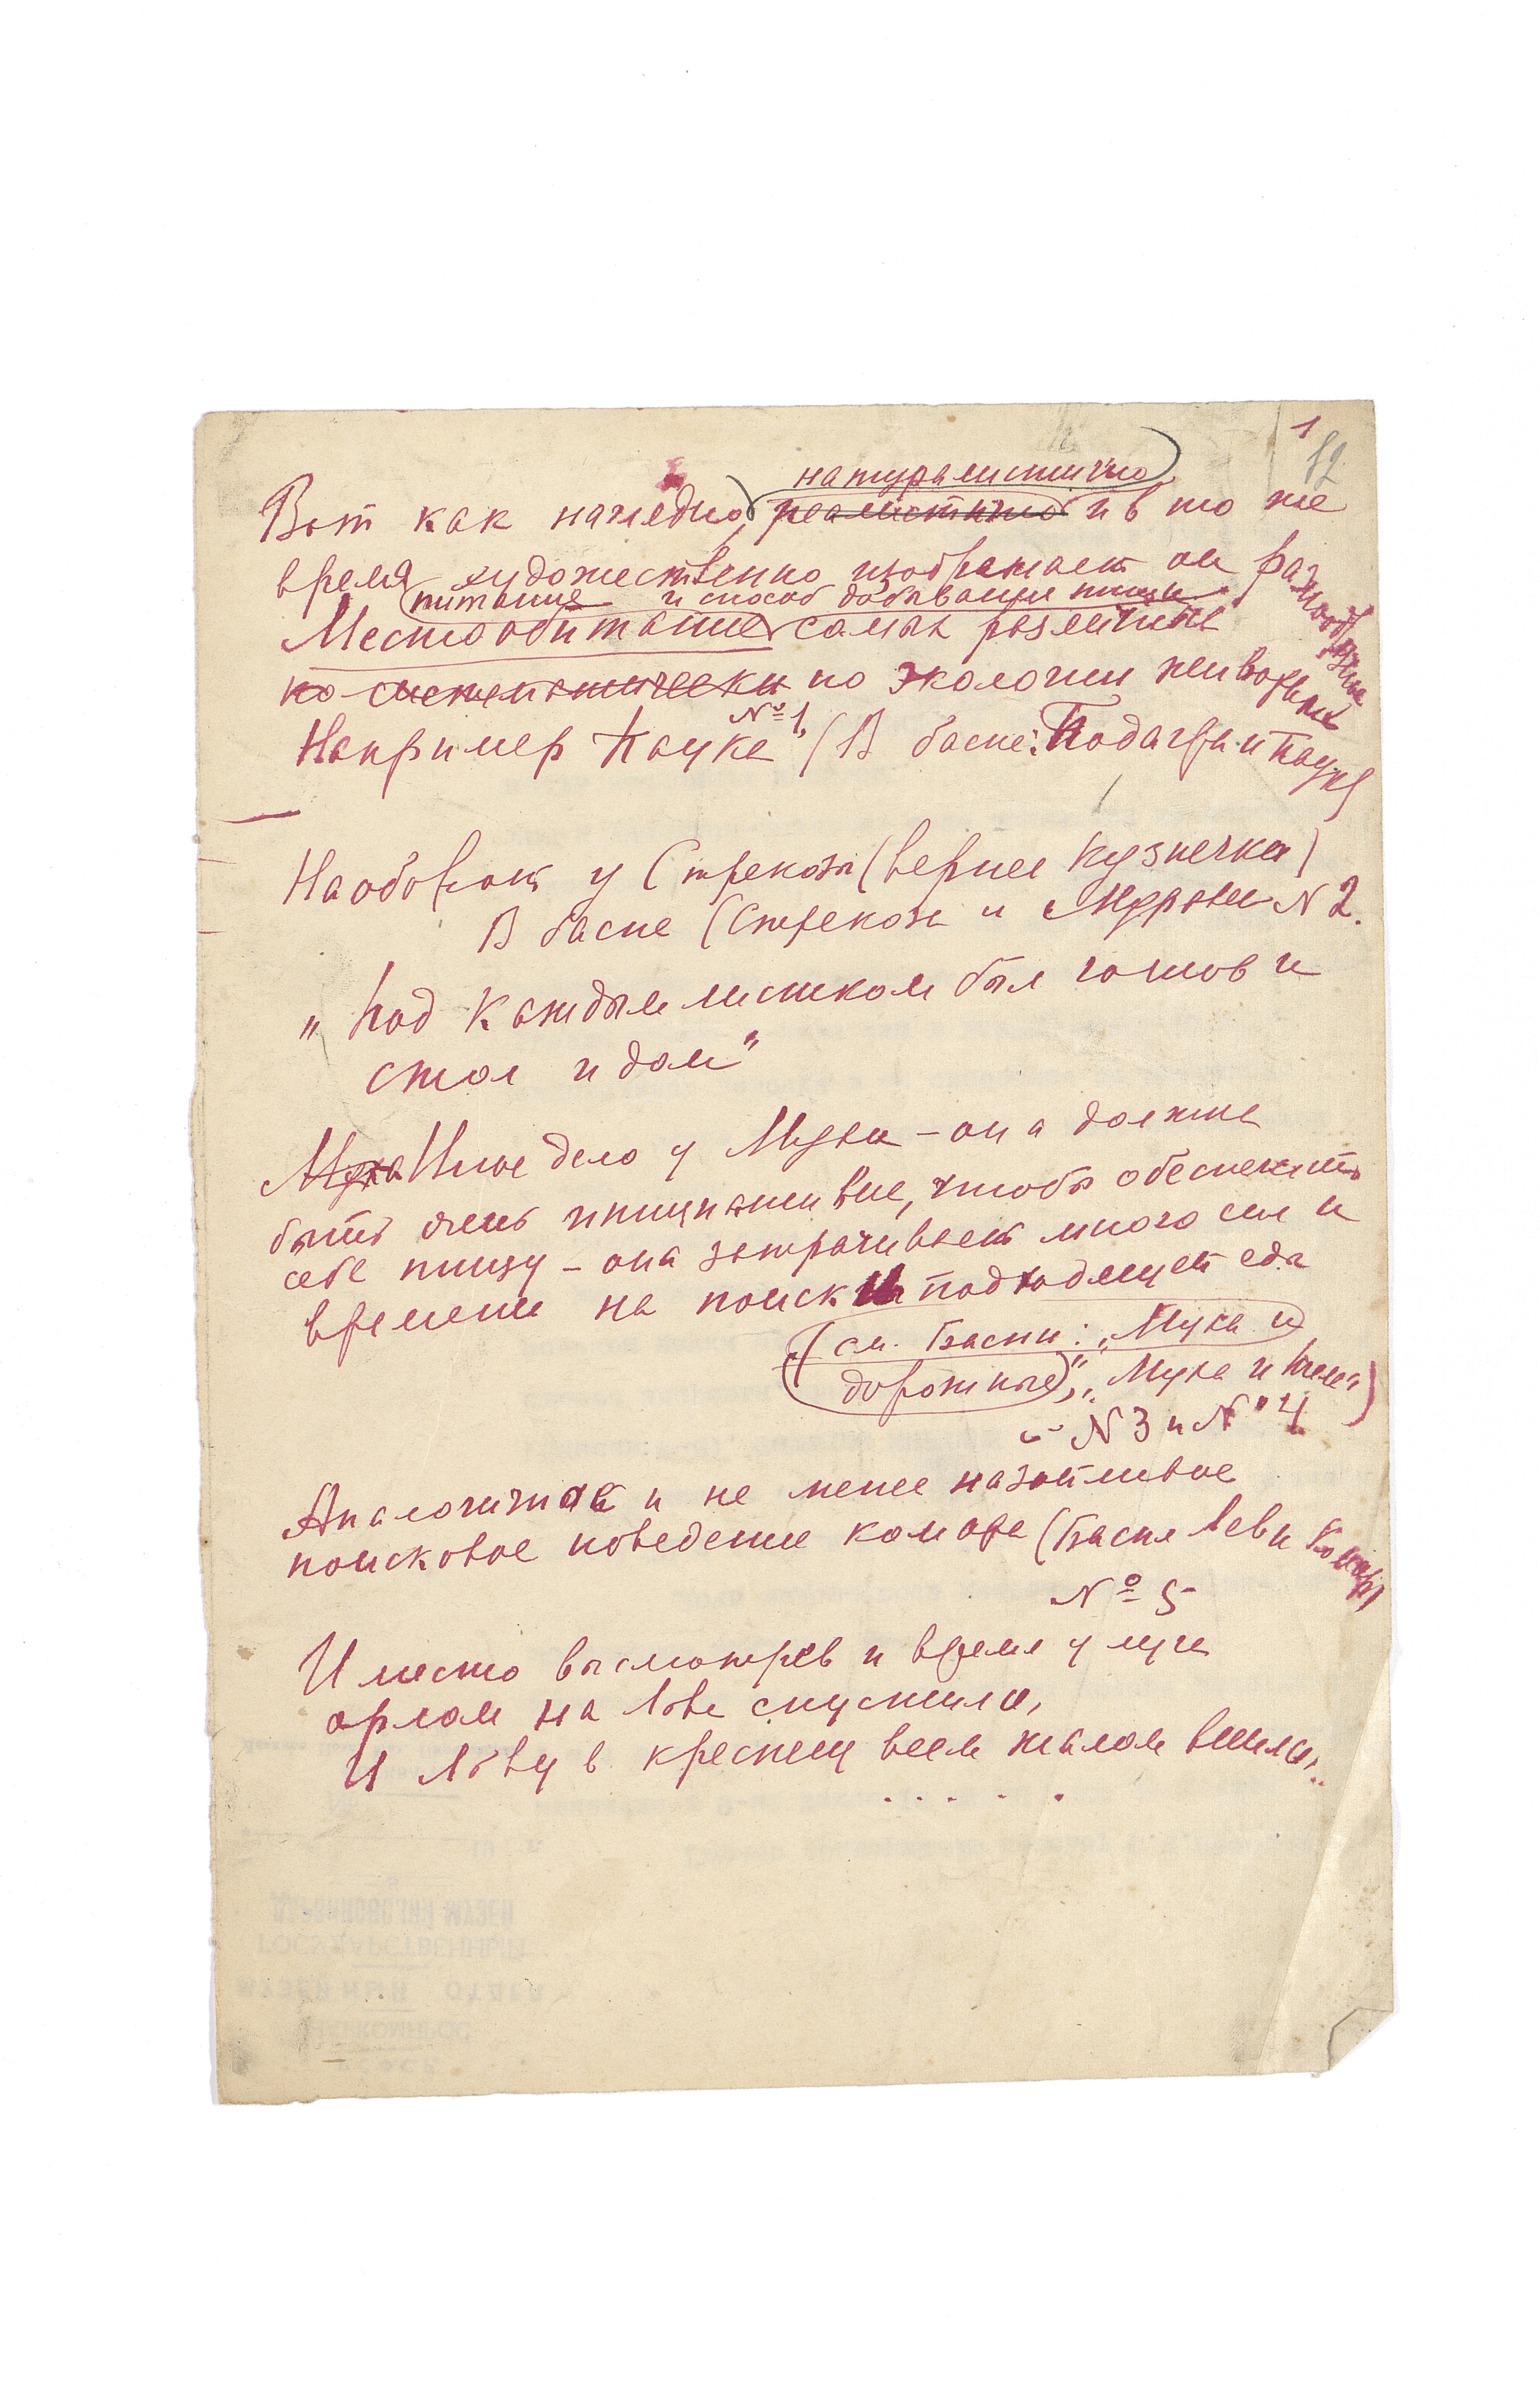 1
натуралистично
Вот как наглядно, реалистично и в то же
время художественно изображает он разнообразие
питание и способ добывания пищи
Местообитание самых различных
по систематически по экологии животных
№1,
Например Паука (В басне: Подагра и Паук)
Наоборот у Стрекозы (вернее Кузнечка)
В басне (Стрекоза и Муравей N 2.
„Под каждым листком был готов и
стол и дом"
Муха Иное дело у Мухи – она должна
быть очень инициативне, чтобы обеспечить
себе пищу – она затрачивает много сил и
времени на поиски подходящей еды
(см. Басни: „Муха и
дорожные", „Муха и Пчела")
N 3 и N 4
Аналогичное и не менее назойливое
поисковое поведение комара (Басня Лев и Комар)
№ 5
И место высмотрев и время улуча
орлом на Льва спустился,
И Льву в крестец всем жалом впился..
. . . . . .
ДАРВИНОВСКИЙ МУЗЕЙ
ГОСУДАРСТВЕННЫЙ
МУЗЕЙНЫЙ ОТДЕЛ
НАРКОМПРОС